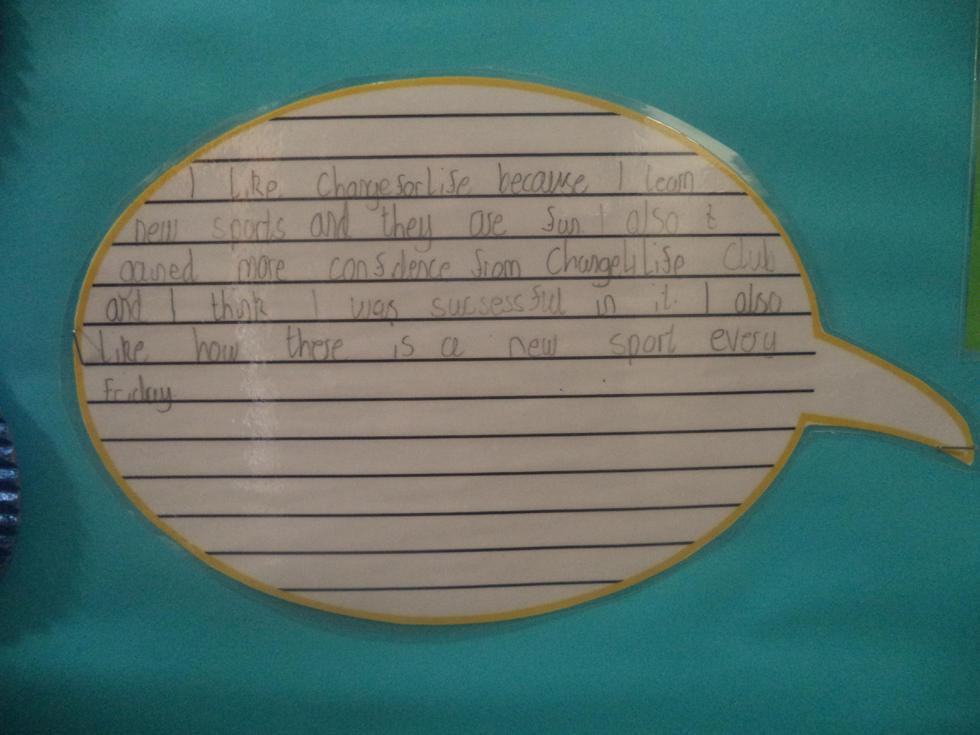 I like changeforlife because I learn
new sports and they are fun I also t
gained more confidence from Change4Life Club
and I think I was sucsessful in it. I also
like how there is a new sport every
friday